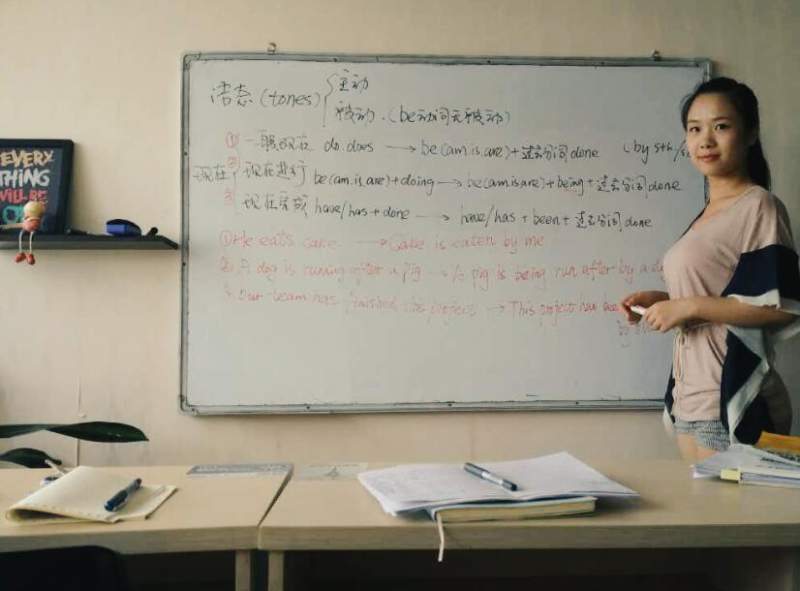 EVERY
THING
WILL BE
OK
语态 (tones)
主动
被动. (be动词无被动)
现在
① 一般现在 do.does → be(am.is.are)+过去分词done (by sth/
② 现在进行 be(am.is.are)+doing → be(am.is.are)+being+过去分词done
③ 现在完成 have/has+done → have/has+been+过去分词done
① He eats cake → Cake is eaten by me
2. A dog is running after a pig → A pig is being run after by a
3. Our team has finished this project → This project has
by